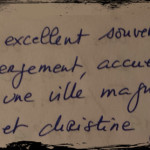 excellent souve
ergement, accue
une ville mag
et christine